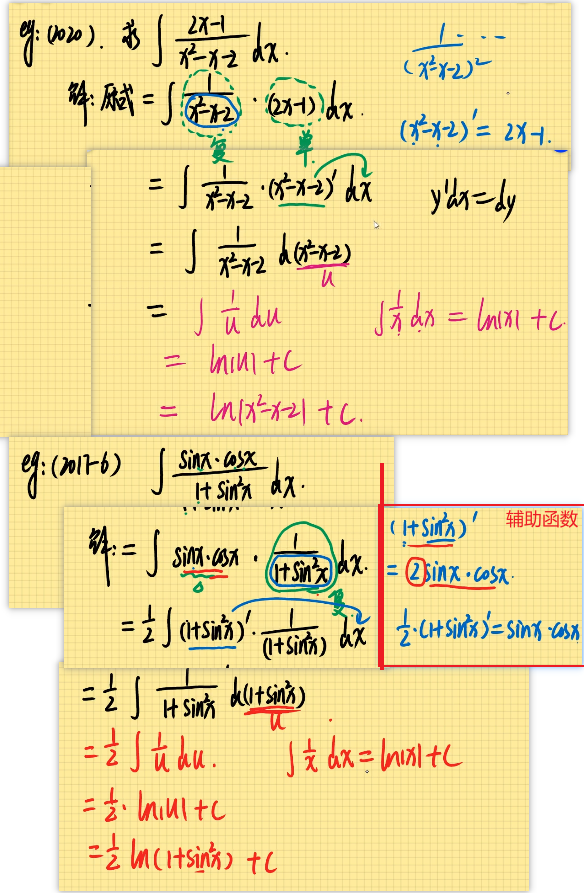 eg: (2020). 求 ∫ (2x-1)/(x²-x-2) dx.
1···/(x²-x-2)²
解: 原式 = ∫ 1/(x²-x-2) · (2x-1) dx.
(x²-x-2)' = 2x-1.
复 单.
= ∫ 1/(x²-x-2) · (x²-x-2)' dx
y'dx = dy
= ∫ 1/(x²-x-2) d(x²-x-2)
u
= ∫ 1/u du
∫ 1/x dx = ln|x| + C.
= ln|u| + C
= ln|x²-x-2| + C.
eg: (2017-6) ∫ (sinx·cosx)/(1+sin²x) dx.
解: = ∫ sinx·cosx · 1/(1+sin²x) dx.
复.
= 1/2 ∫ (1+sin²x)' · 1/(1+sin²x) dx
辅助函数
(1+sin²x)'
= 2sinx·cosx.
1/2·(1+sin²x)' = sinx·cosx
= 1/2 ∫ 1/(1+sin²x) d(1+sin²x)
u
= 1/2 ∫ 1/u du.
∫ 1/x dx = ln|x| + C
= 1/2 · ln|u| + C
= 1/2 ln(1+sin²x) + C